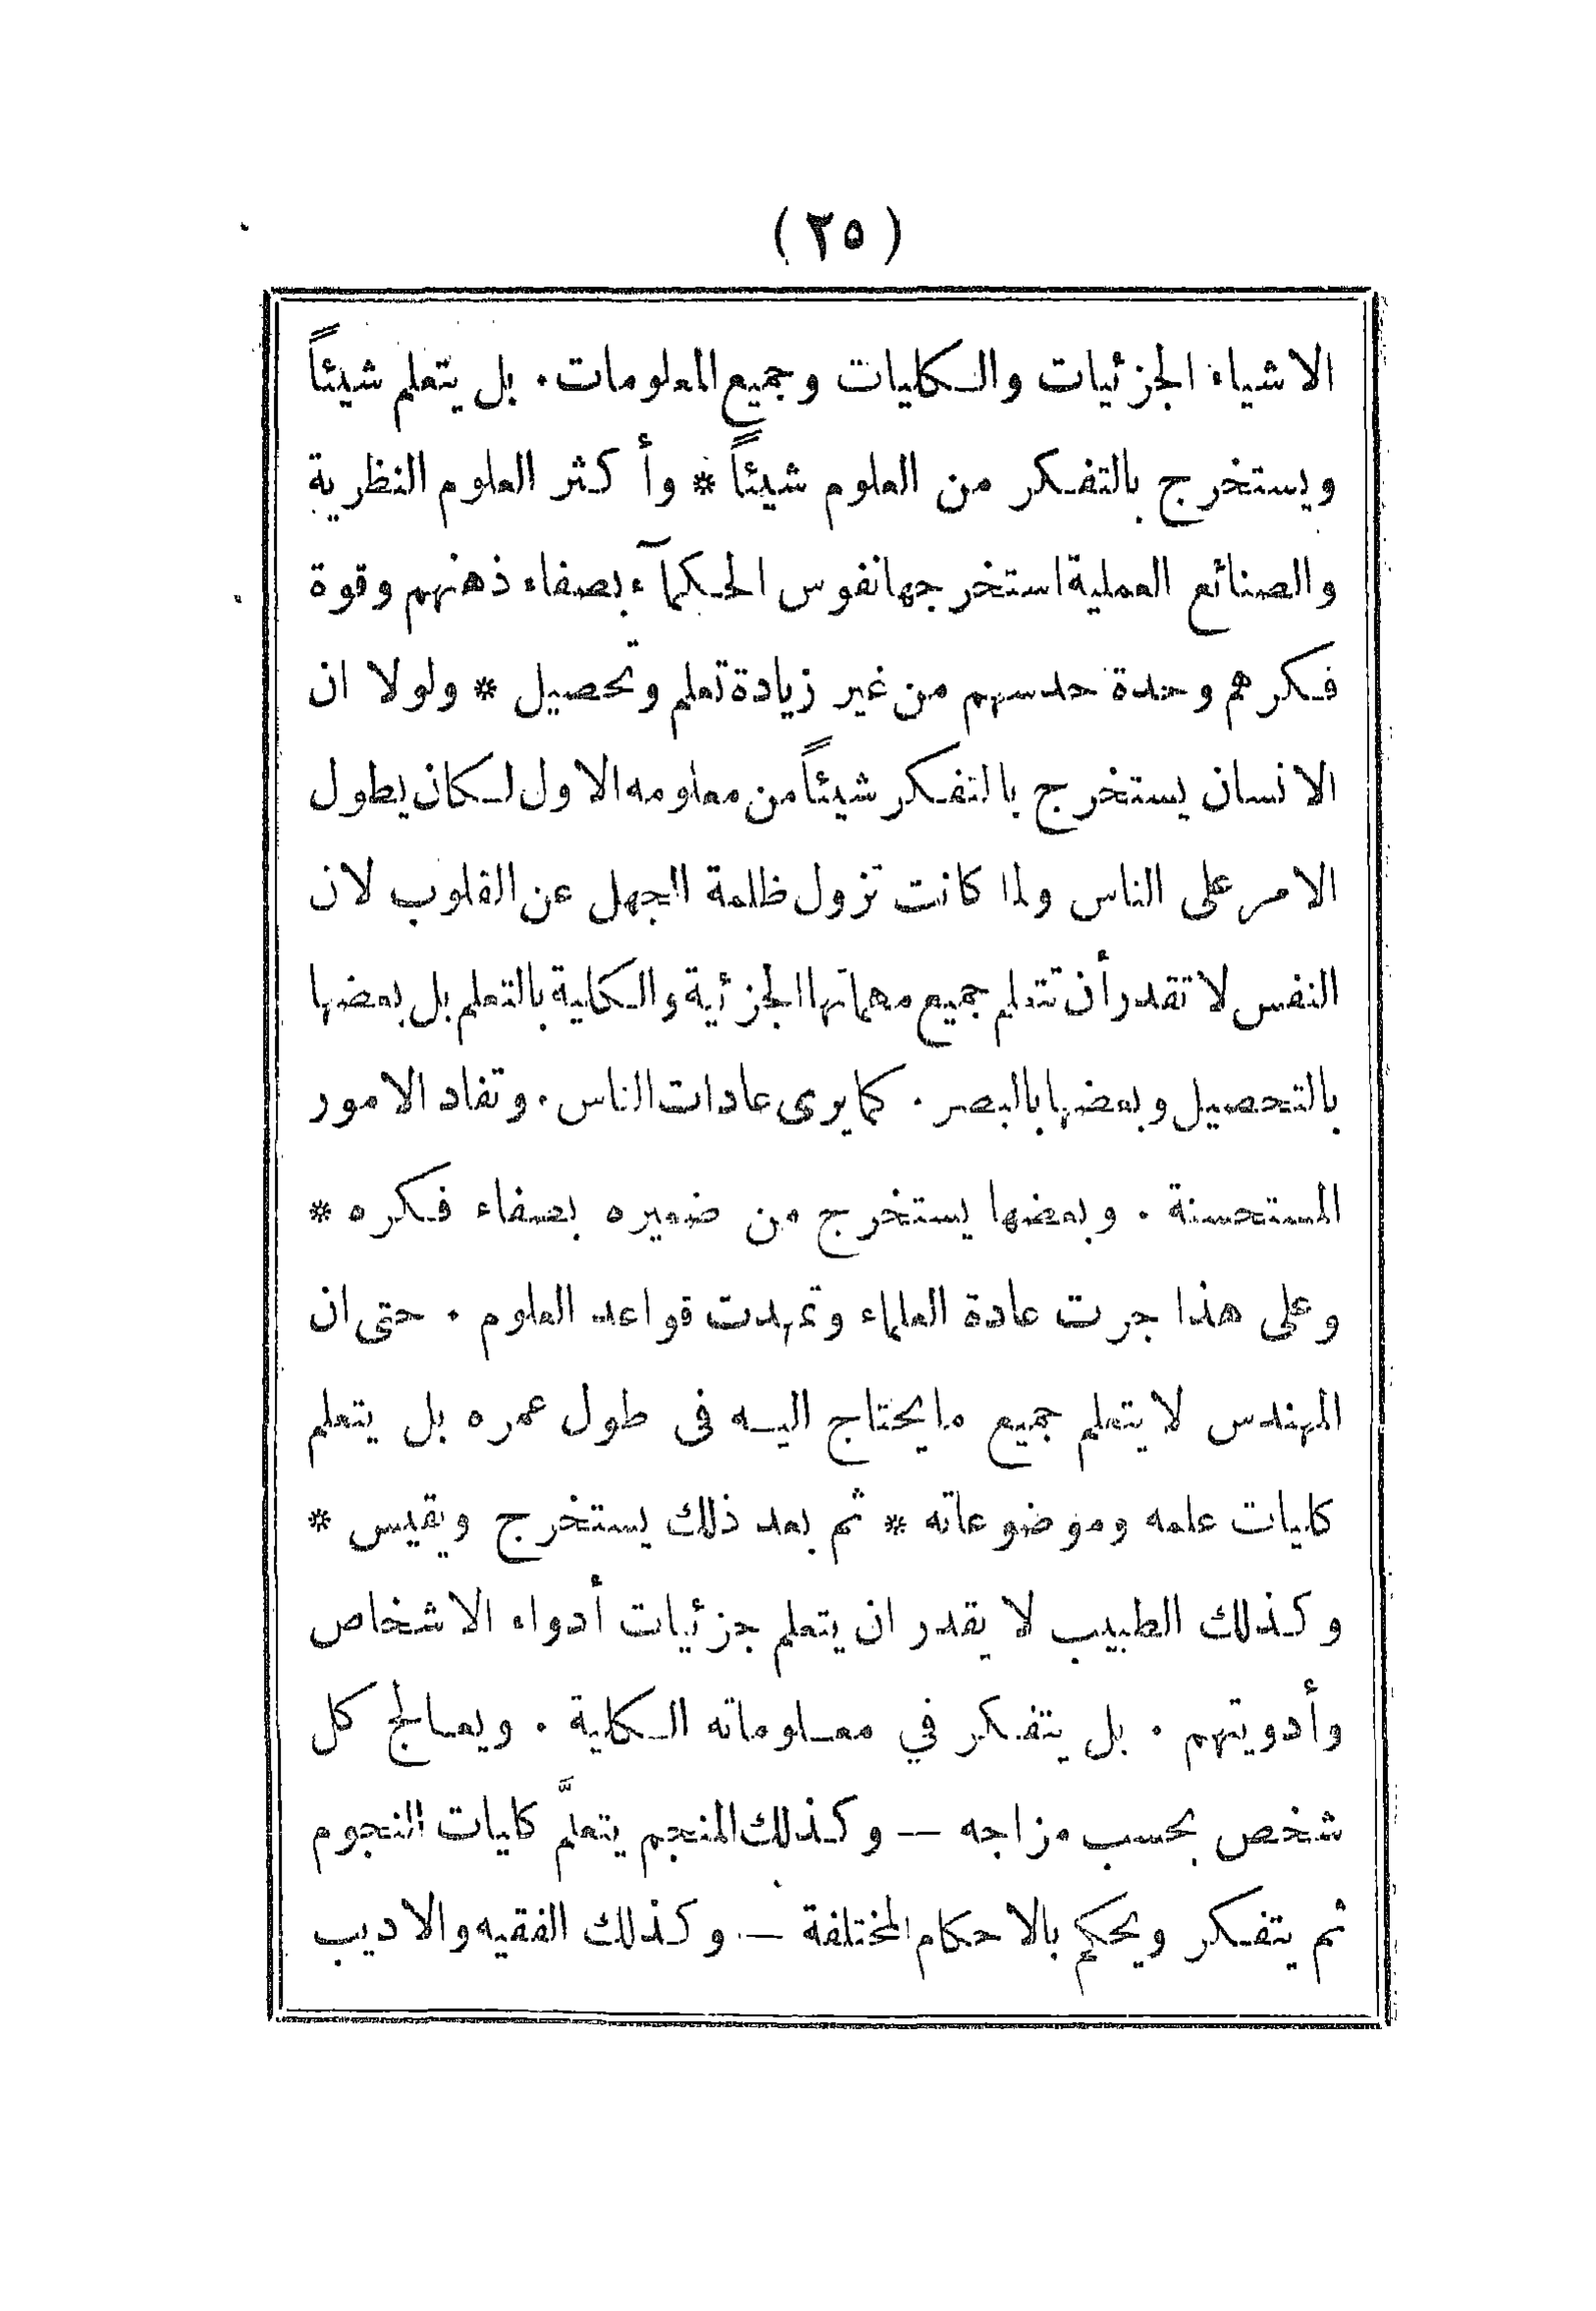 ( ٢٥ )
الاشياء الجزئيات والكليات وجميع المعلومات . بل يتعلم شيئاً
ويستخرج بالتفكر من العلوم شيئاً * وأكثر العلوم النظرية
والصنائع العملية استخرجها نفوس الحكمآء بصفاء ذهنهم وقوة
فكرهم وحدة حدسهم من غير زيادة تعلم وتحصيل * ولولا ان
الانسان يستخرج بالتفكر شيئاً من معلومه الاول لكان يطول
الامر على الناس ولما كانت تزول ظلمة الجهل عن القلوب لان
النفس لا تقدر أن تتعلم جميع مهماتها الجزئية والكلية بالتعلم بل بعضها
بالتحصيل وبعضها بالبصر . كما يرى عادات الناس . وتفاد الامور
المستحسنة . وبعضها يستخرج من ضميره بصفاء فكره *
وعلى هذا جرت عادة العلماء وتمهدت قواعد العلوم . حتى ان
المهندس لا يتعلم جميع ما يحتاج اليه فى طول عمره بل يتعلم
كليات علمه وموضوعاته * ثم بعد ذلك يستخرج ويقيس *
وكذلك الطبيب لا يقدر ان يتعلم جزئيات أدواء الاشخاص
وأدويتهم . بل يتفكر في معلوماته الكلية . ويعالج كل
شخص بحسب مزاجه — وكذلك المنجم يتعلَّم كليات النجوم
ثم يتفكر ويحكم بالاحكام المختلفة — وكذلك الفقيه والاديب